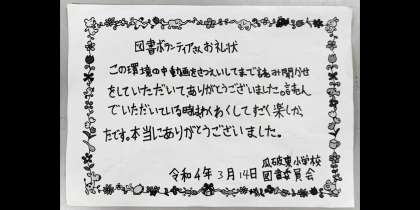 図書ボランティアさんお礼状
この環境の中動画をさつえいしてまで読み聞かせ
をしていただいてありがとうございました。読んで
いただいている時はわくわくしてすごく楽しか
たです。本当にありがとうございました。
令和4年3月14日
瓜破東小学校
図書委員会